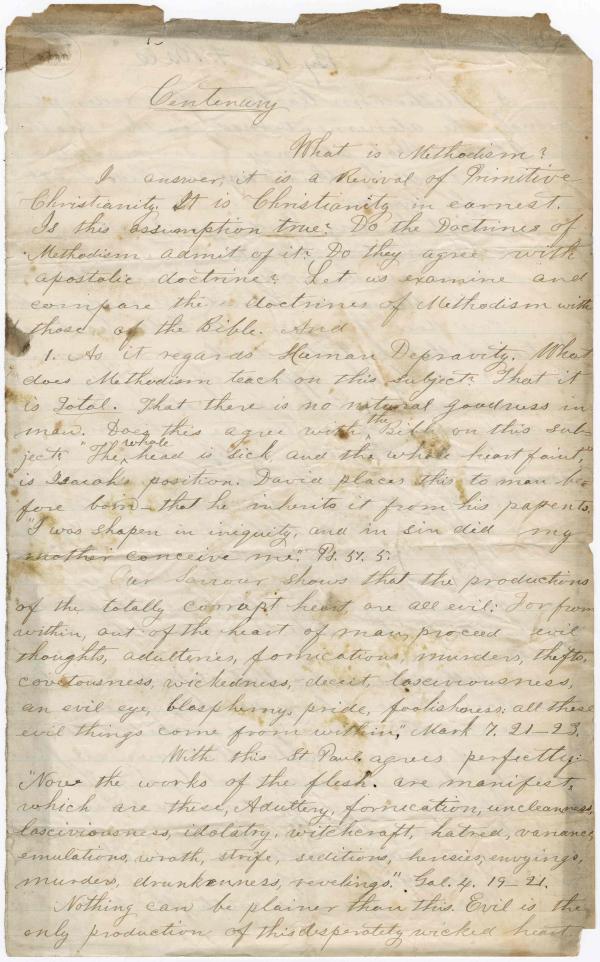 Centenary
What is Methodism?
I answer, it is a Revival of Primitive
Christianity. It is Christianity in earnest.
Is this assumption true? Do the Doctrines of
Methodism admit of it? Do they agree with
apostolic doctrine? Let us examine and
compare the doctrines of Methodism with
those of the Bible. And
1. As it regards Human Depravity. What
does Methodism teach on this subject? That it
is Total. That there is no natural goodness in
man. Does this agree with the Bible on this sub-
ject? "The whole head is sick and the whole heart faint,"
is Isaiah's position. David places this to man be-
fore born—that he inherits it from his parents.
"I was shapen in iniquity, and in sin did my
mother conceive me." Ps. 51. 5.
Our Saviour shows that the productions
of the totally corrupt heart are all evil: For from
within, out of the heart of man, proceed evil
thoughts, adulteries, fornications, murders, thefts,
covetousness, wickedness, deceit, lasciviousness,
an evil eye, blasphemy, pride, foolishness: all these
evil things come from within," Mark 7. 21-23.
With this St Paul agrees perfectly:
"Now the works of the flesh are manifest,
which are these, Adultery, fornication, uncleanness,
lasciviousness, idolatry, witchcraft, hatred, variance,
emulations, wrath, strife, seditions, heresies, envyings,
murders, drunkenness, revelings." Gal. 4. 19-21.
Nothing can be plainer than this. Evil is the
only production of this desperately wicked heart.